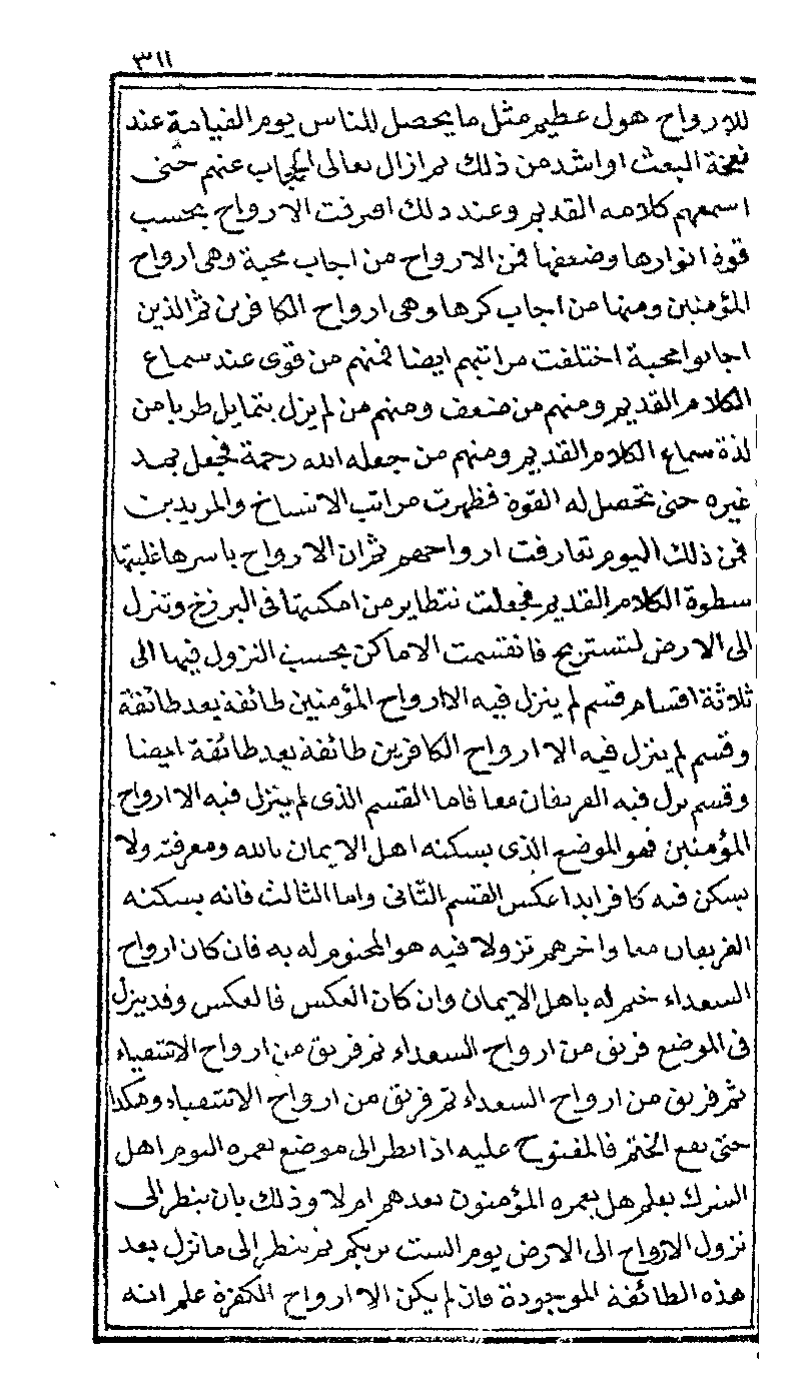 ٣١١
للارواح هول عظيم مثل ما يحصل للناس يوم القيامة عند
نفخة البعث او اشد من ذلك ثم ازال تعالى الحجاب عنهم حتى
اسمعهم كلامه القديم وعند ذلك افترقت الارواح بحسب
قوة انوارها وضعفها فمن الارواح من اجاب محبة وهى ارواح
المؤمنين ومنها من اجاب كرها وهى ارواح الكافرين ثم الذين
اجابوا محبة اختلفت مراتبهم ايضا فمنهم من قوى عند سماع
الكلام القديم ومنهم من ضعف ومنهم من لم يزل يتمايل طربا من
لذة سماع الكلام القديم ومنهم من جعله الله رحمة فجعل يمد
غيره حتى تحصل له القوة فظهرت مراتب الاشياخ والمريدين
فمن ذلك اليوم تعارفت ارواحهم ثم ان الارواح باسرها غلبتها
سطوة الكلام القديم فجعلت تتطاير من امكنتها فى البرزخ وتنزل
الى الارض لتستريح فانقسمت الاماكن بحسب النزول فيها الى
ثلاثة اقسام قسم لم ينزل فيه الا ارواح المؤمنين طائفة بعد طائفة
وقسم لم ينزل فيه الا ارواح الكافرين طائفة بعد طائفة ايضا
وقسم نزل فيه الفريقان معا فاما القسم الذى لم ينزل فيه الا ارواح
المؤمنين فهو الموضع الذى يسكنه اهل الايمان بالله ومعرفته ولا
يسكن فيه كافر ابدا عكس القسم الثانى واما الثالث فانه يسكنه
الفريقان معا واخرهم نزولا فيه هو المختوم له به فان كان ارواح
السعداء ختم له باهل الايمان وان كان العكس فالعكس وقد ينزل
فى الموضع فريق من ارواح السعداء ثم فريق من ارواح الاشقياء
ثم فريق من ارواح السعداء ثم فريق من ارواح الاشقياء وهكذا
حتى يقع الختم فالمفتوح عليه اذا نظر الى موضع يعمره اليوم اهل
الشرك يعلم هل يعمره المؤمنون بعدهم ام لا وذلك بان ينظر الى
نزول الارواح الى الارض يوم الست بربكم ثم ينظر الى ما نزل بعد
هذه الطائفة الموجودة فان لم يكن الا ارواح الكفرة علم انه